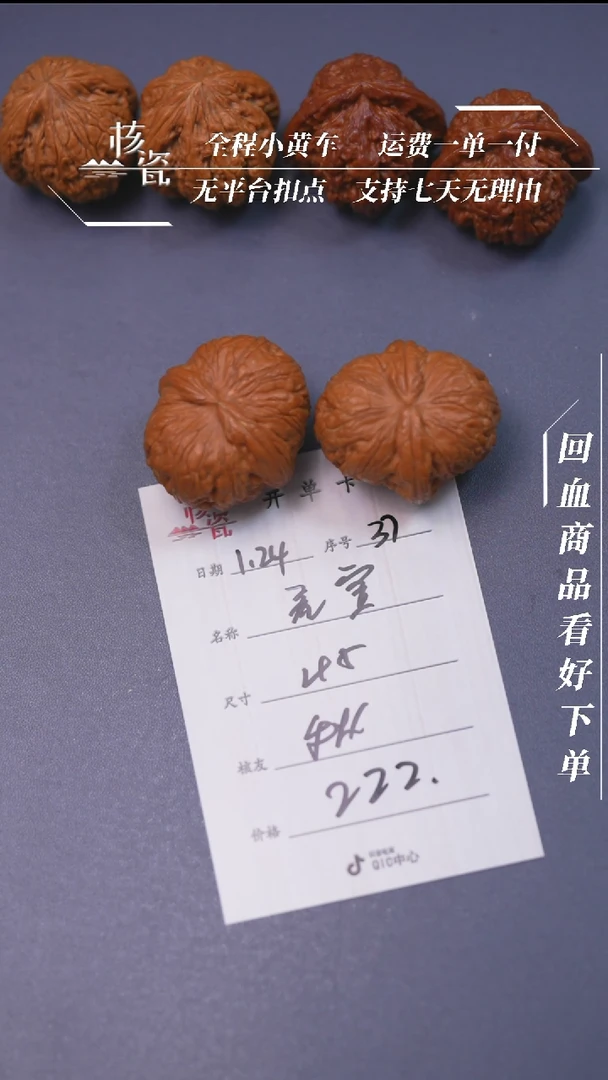 核瓷
全程小黄车 运费一单一付
无平台扣点 支持七天无理由
回血商品看好下单
核瓷
开单卡
日期 1.24 序号 37
名称 元宝
尺寸 45
核友
价格 222.
QIC中心